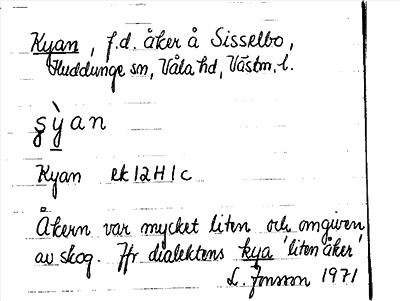 Kyan, f.d. åker å Sisselbo,
Huddunge sn, Våla hd, Västm. l.
şỳan
Kyan ek 12H1c
Åkern var mycket liten och omgiven
av skog. Jfr dialektens kya 'liten åker'
L. Jonsson 1971